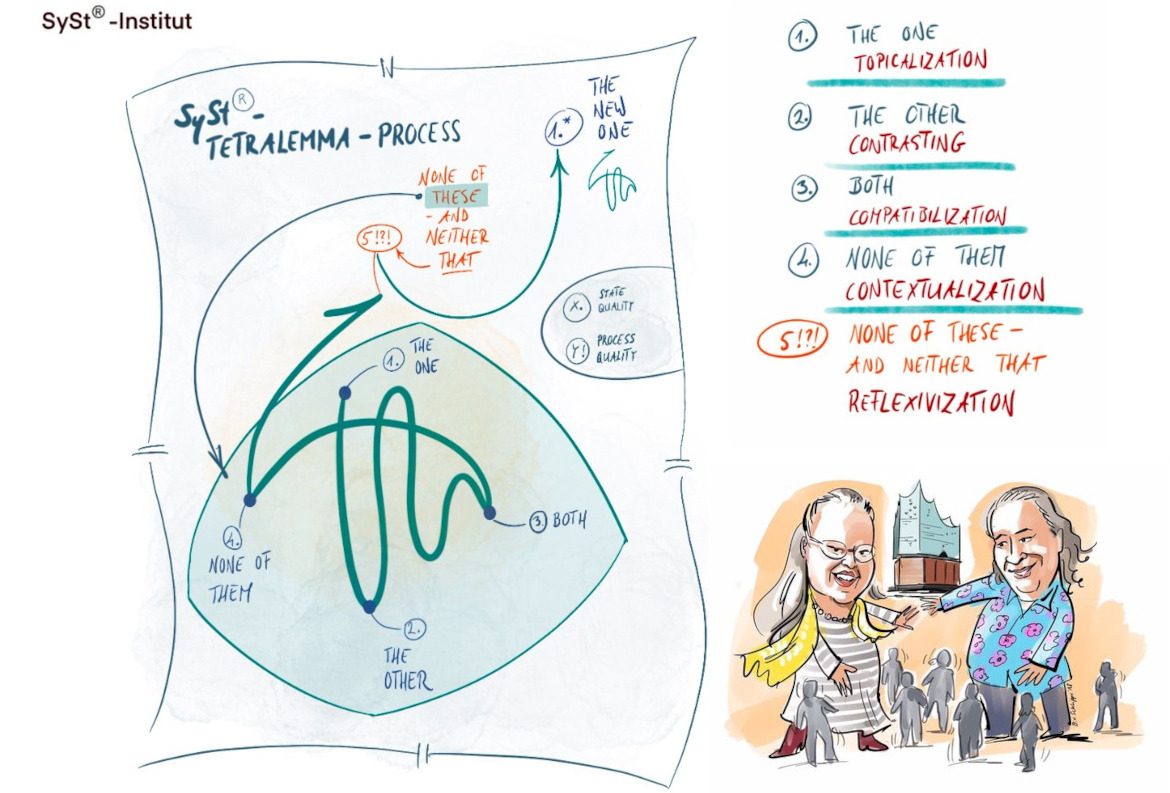 SySt® -Institut
SySt® -
TETRALEMMA - PROCESS
NONE OF
THESE
- AND
NEITHER
THAT
5!?!
1.*
THE
NEW
ONE
X. STATE
QUALITY
Y! PROCESS
QUALITY
1. THE
ONE
3. BOTH
4.
NONE OF
THEM
2.
THE
OTHER
1. THE ONE
TOPICALIZATION
2. THE OTHER
CONTRASTING
3. BOTH
COMPATIBILIZATION
4. NONE OF THEM
CONTEXTUALIZATION
5!?! NONE OF THESE -
AND NEITHER THAT
REFLEXIVIZATION